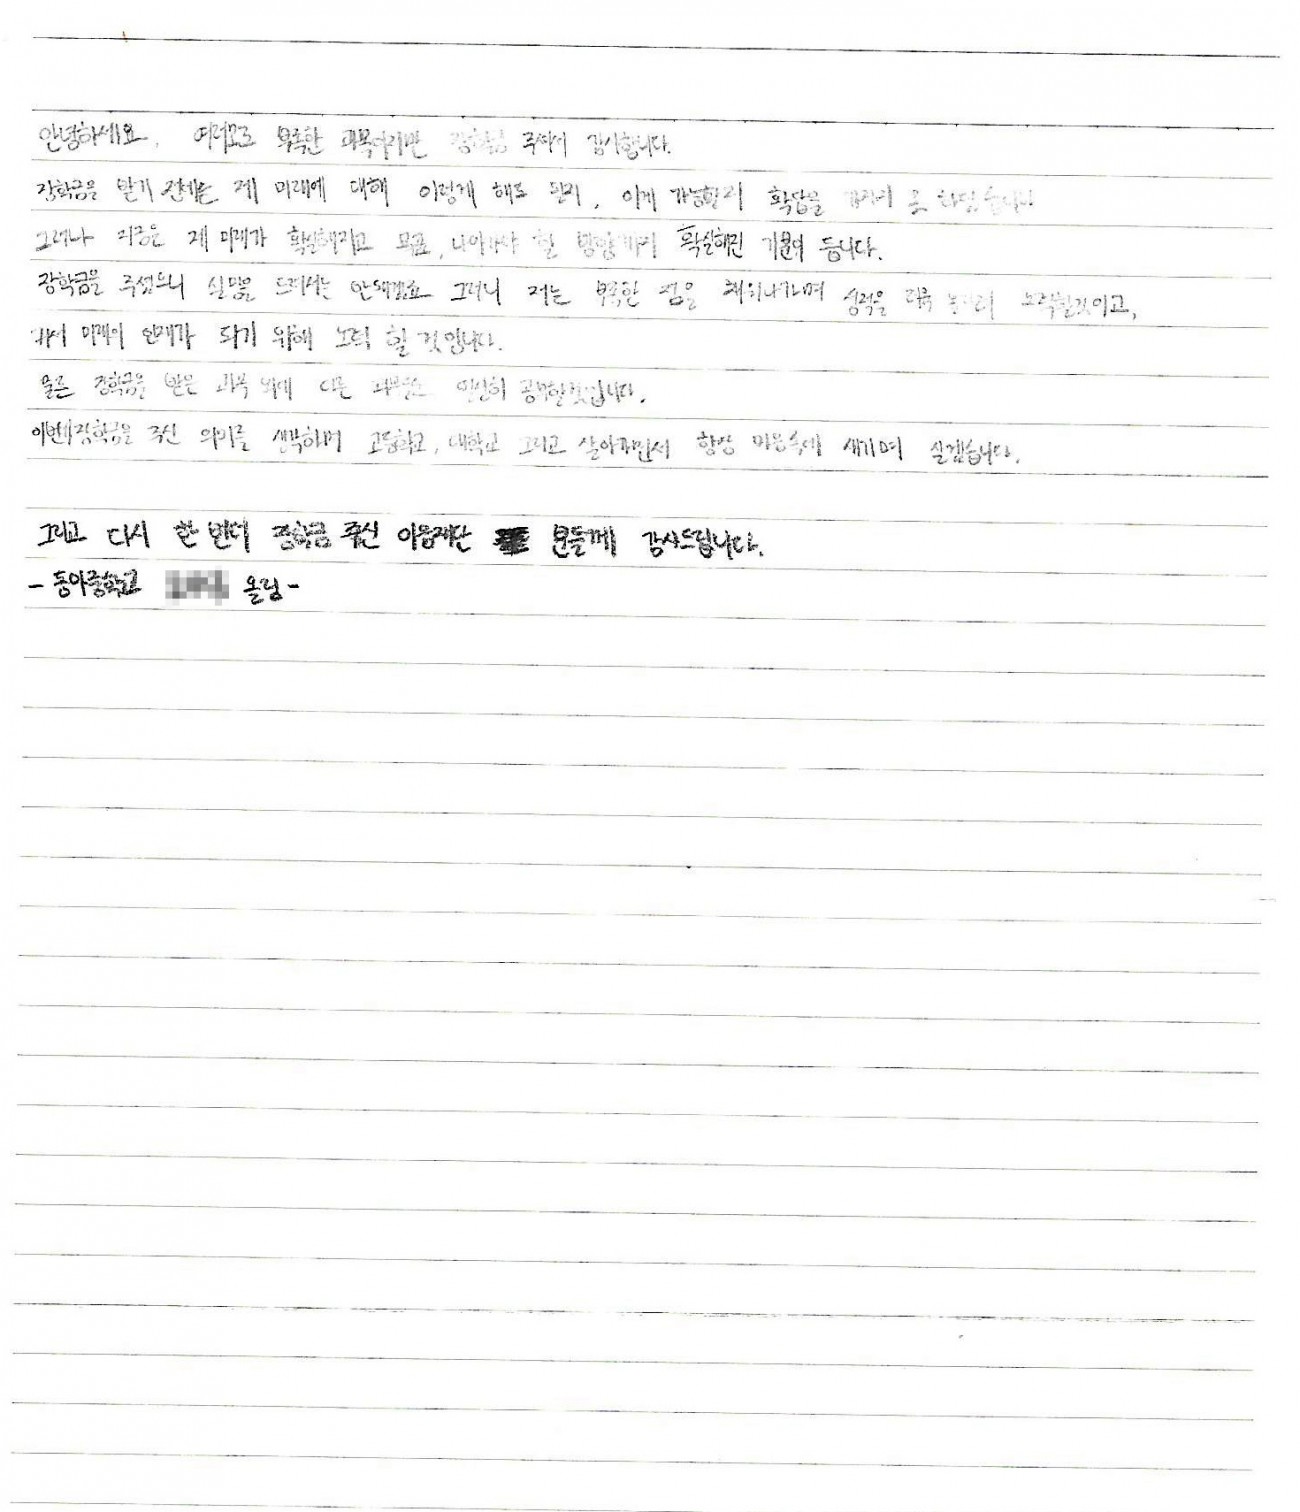 안녕하세요, 여러모로 부족한 과목이지만 장학금 주셔서 감사합니다.
장학금을 받기 전에는 제 미래에 대해 이렇게 해도 될지, 이게 가능할지 확답을 가지지 못 하였습니다
그러나 지금은 제 미래가 확실해지고 목표, 나아가야 할 방향까지 확실해진 기분이 듭니다.
장학금을 주셨으니 실망을 드려서는 안돼겠죠 그러니 저는 부족한 점을 채워나가며 성적을 더욱 높이려 노력할것이고,
미래의 인재가 되기 위해 노력 할 것입니다.
물론 장학금을 받은 과목 외에 다른 과목들도 열심히 공부할것입니다.
이번에 장학금을 주신 의미를 생각하며 고등학교, 대학교 그리고 살아가면서 항상 마음속에 새기며 살겠습니다.
그리고 다시 한 번더 장학금 주신 이음재단 분들께 감사드립니다.
- 동아중학교 올림 -